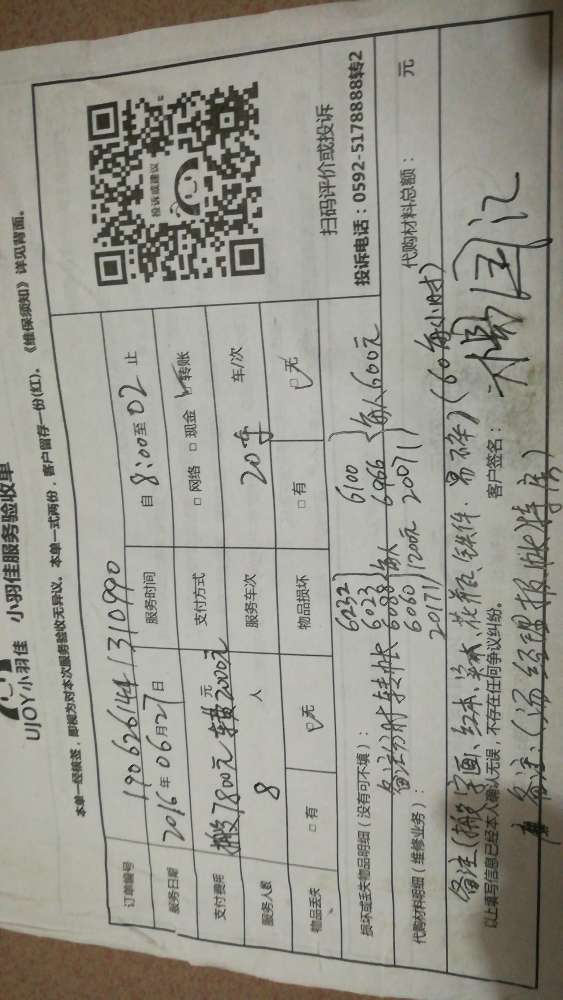 UJOY小羽佳 小羽佳服务验收单
本单一经核签，即视为对本次服务验收无异议。本单一式两份，客户留存一份(红)。《维保须知》详见背面。
订单编号 190626144/310990
服务日期 2016年06月27日 服务时间 自 8:00至02止
支付费用 搬资7800元 车费2000元 支付方式 □网络 □现金 □转账
服务人数 8 人 服务车次 20车 车/次
物品丢失 □有 □无 物品损坏 □有 □无
投诉或建议
扫码评价或投诉
投诉电话：0592-5178888转2
损坏或丢失物品明细（没有可不填）：
6232 6100
6123
备注分时转帐 6088 每人 6066 每人600元
6060 1200元 20071
20171
代购材料明细（维修业务）： 代购材料总额： 元
备注(搬字画、红木、实木、花瓶、铁件、易碎)(60每小时)
以上填写信息已经本人确认无误，不存在任何争议纠纷。 客户签名：
备注：(汤经理报帐